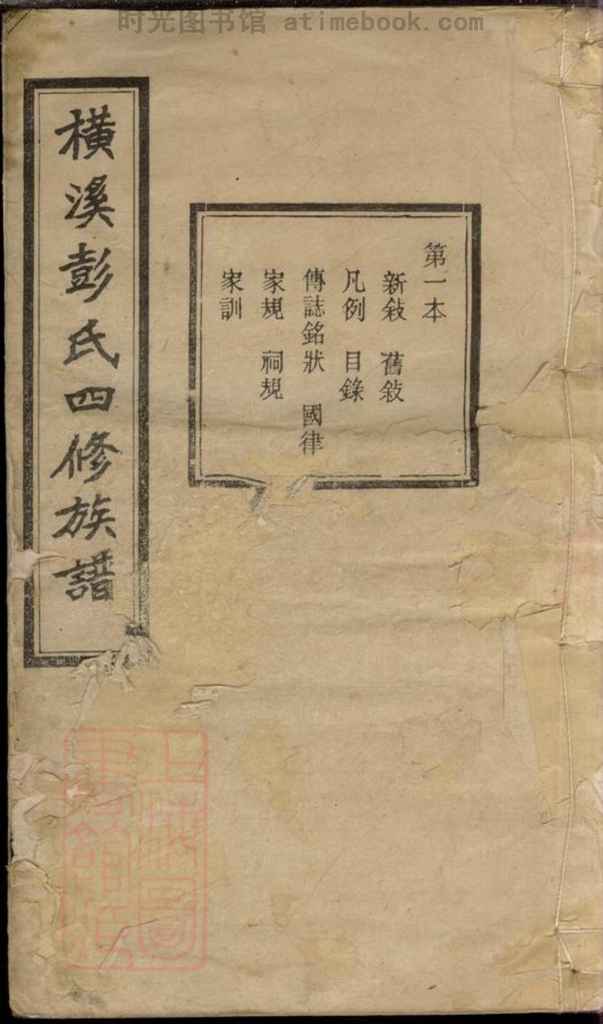 时光图书馆 atimebook.com
橫溪彭氏四修族譜
第一本
新敍 舊敍
凡例 目錄
傳誌銘狀 國律
家規 祠規
家訓